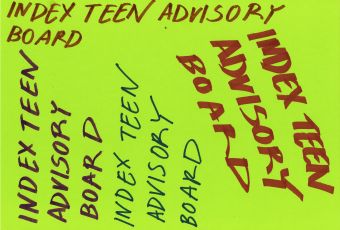 INDEX TEEN ADVISORY
BOARD
INDEX TEEN
ADVISORY
BOARD
INDEX TEEN
ADVISORY
BOARD
INDEX TEEN
ADVISORY
BOARD